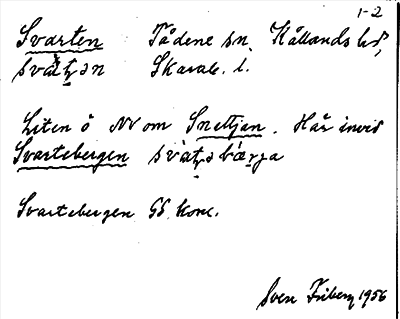 1-2
Svarten Tådene sn. Kållands hd,
Skarab. l.
Liten ö NV om Snettjan. Här invid
Svartebergen
Svartebergen GS konc.
Sven Friberg 1956